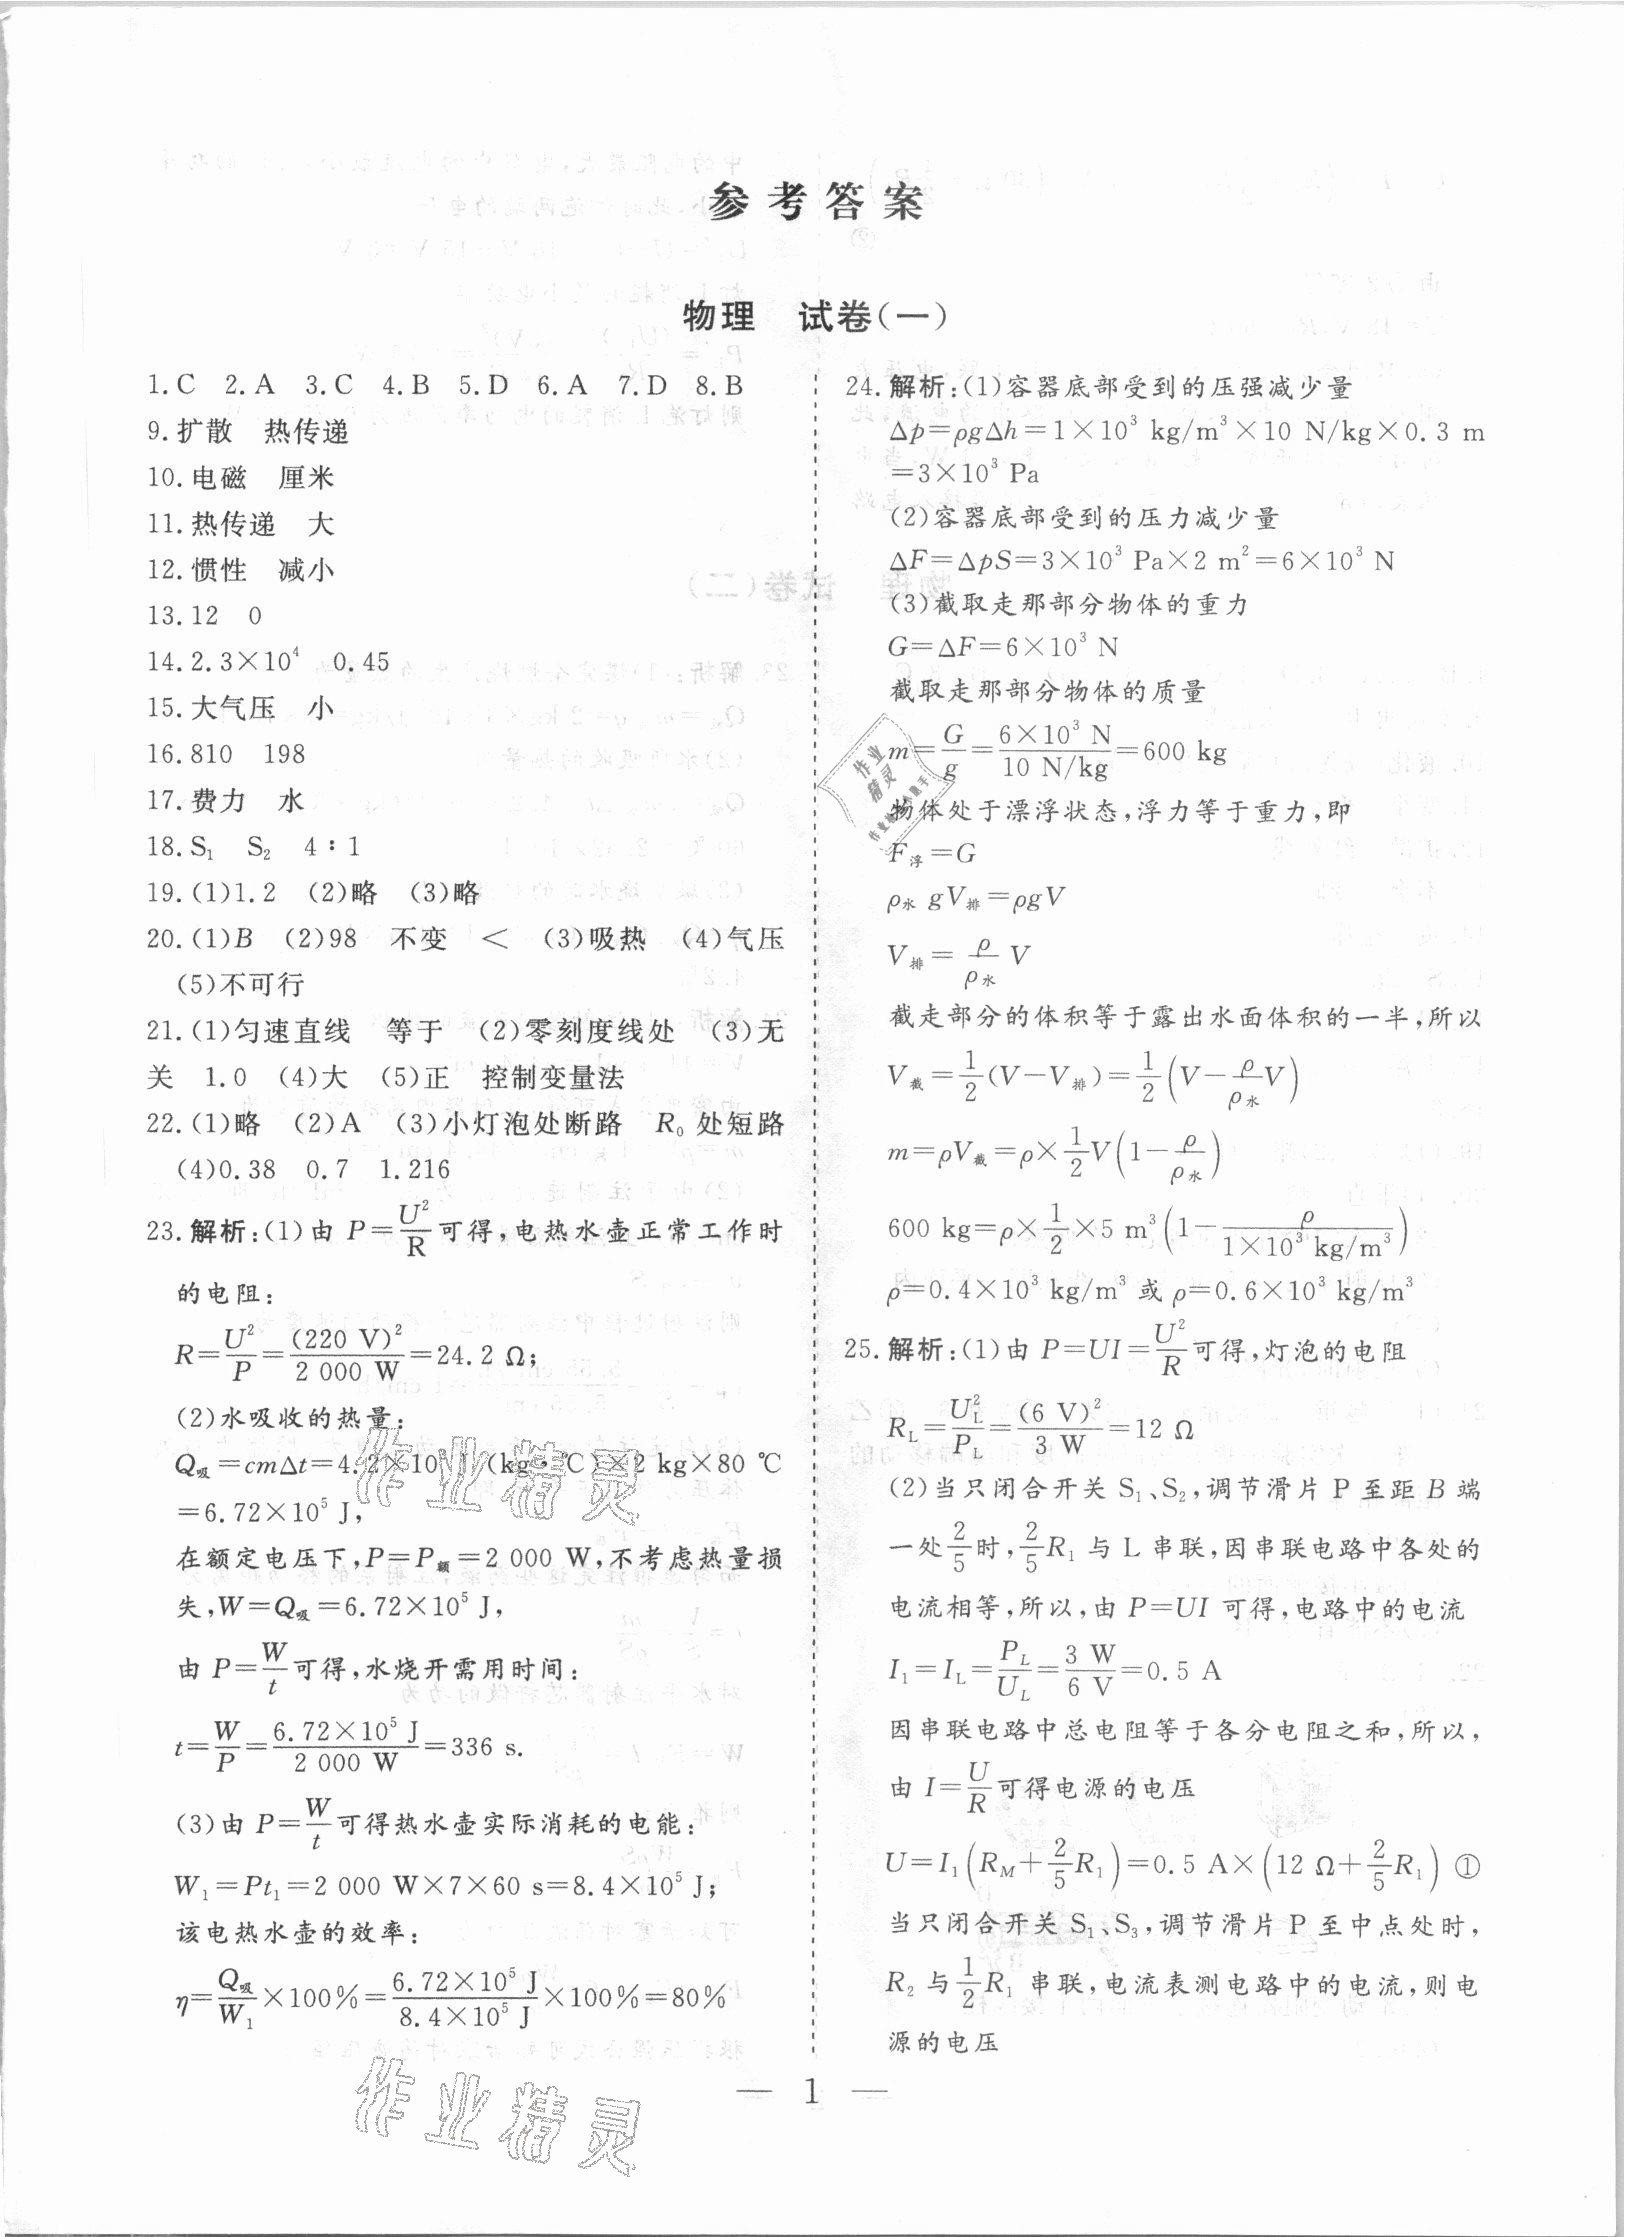 参考答案
物理 试卷(一)
1.C 2.A 3.C 4.B 5.D 6.A 7.D 8.B
9.扩散 热传递
10.电磁 厘米
11.热传递 大
12.惯性 减小
13.12 0
14.2.3×10⁴ 0.45
15.大气压 小
16.810 198
17.费力 水
18.S₁ S₂ 4∶1
19.(1)1.2 (2)略 (3)略
20.(1)B (2)98 不变 < (3)吸热 (4)气压
(5)不可行
21.(1)匀速直线 等于 (2)零刻度线处 (3)无
关 1.0 (4)大 (5)正 控制变量法
22.(1)略 (2)A (3)小灯泡处断路 R₀处短路
(4)0.38 0.7 1.216
23.解析:(1)由 P=U²/R可得,电热水壶正常工作时
的电阻:
R=U²/P=(220 V)²/2 000 W=24.2 Ω;
(2)水吸收的热量:
Q吸=cmΔt=4.2×10³ J/(kg·℃)×2 kg×80 ℃
=6.72×10⁵ J,
在额定电压下,P=P额=2 000 W,不考虑热量损
失,W=Q吸=6.72×10⁵ J,
由 P=W/t可得,水烧开需用时间:
t=W/P=6.72×10⁵ J/2 000 W=336 s.
(3)由 P=W/t可得热水壶实际消耗的电能:
W₁=Pt₁=2 000 W×7×60 s=8.4×10⁵ J;
该电热水壶的效率:
η=Q吸/W₁×100%=6.72×10⁵ J/8.4×10⁵ J×100%=80%
24.解析:(1)容器底部受到的压强减少量
Δp=ρgΔh=1×10³ kg/m³×10 N/kg×0.3 m
=3×10³ Pa
(2)容器底部受到的压力减少量
ΔF=ΔpS=3×10³ Pa×2 m²=6×10³ N
(3)截取走那部分物体的重力
G=ΔF=6×10³ N
截取走那部分物体的质量
m=G/g=6×10³ N/10 N/kg=600 kg
物体处于漂浮状态,浮力等于重力,即
F浮=G
ρ水gV排=ρgV
V排=ρ/ρ水 V
截走部分的体积等于露出水面体积的一半,所以
V截=1/2(V-V排)=1/2(V-ρ/ρ水V)
m=ρV截=ρ×1/2V(1-ρ/ρ水)
600 kg=ρ×1/2×5 m³(1-ρ/1×10³ kg/m³)
ρ=0.4×10³ kg/m³ 或 ρ=0.6×10³ kg/m³
25.解析:(1)由 P=UI=U²/R可得,灯泡的电阻
R_L=U_L²/P_L=(6 V)²/3 W=12 Ω
(2)当只闭合开关 S₁、S₂,调节滑片 P 至距 B 端
一处2/5时,2/5R₁与 L 串联,因串联电路中各处的
电流相等,所以,由 P=UI 可得,电路中的电流
I₁=I_L=P_L/U_L=3 W/6 V=0.5 A
因串联电路中总电阻等于各分电阻之和,所以,
由 I=U/R可得电源的电压
U=I₁(R_M+2/5R₁)=0.5 A×(12 Ω+2/5R₁) ①
当只闭合开关 S₁、S₃,调节滑片 P 至中点处时,
R₂与1/2R₁串联,电流表测电路中的电流,则电
源的电压
— 1 —
作业精灵
作业精灵
作业精灵